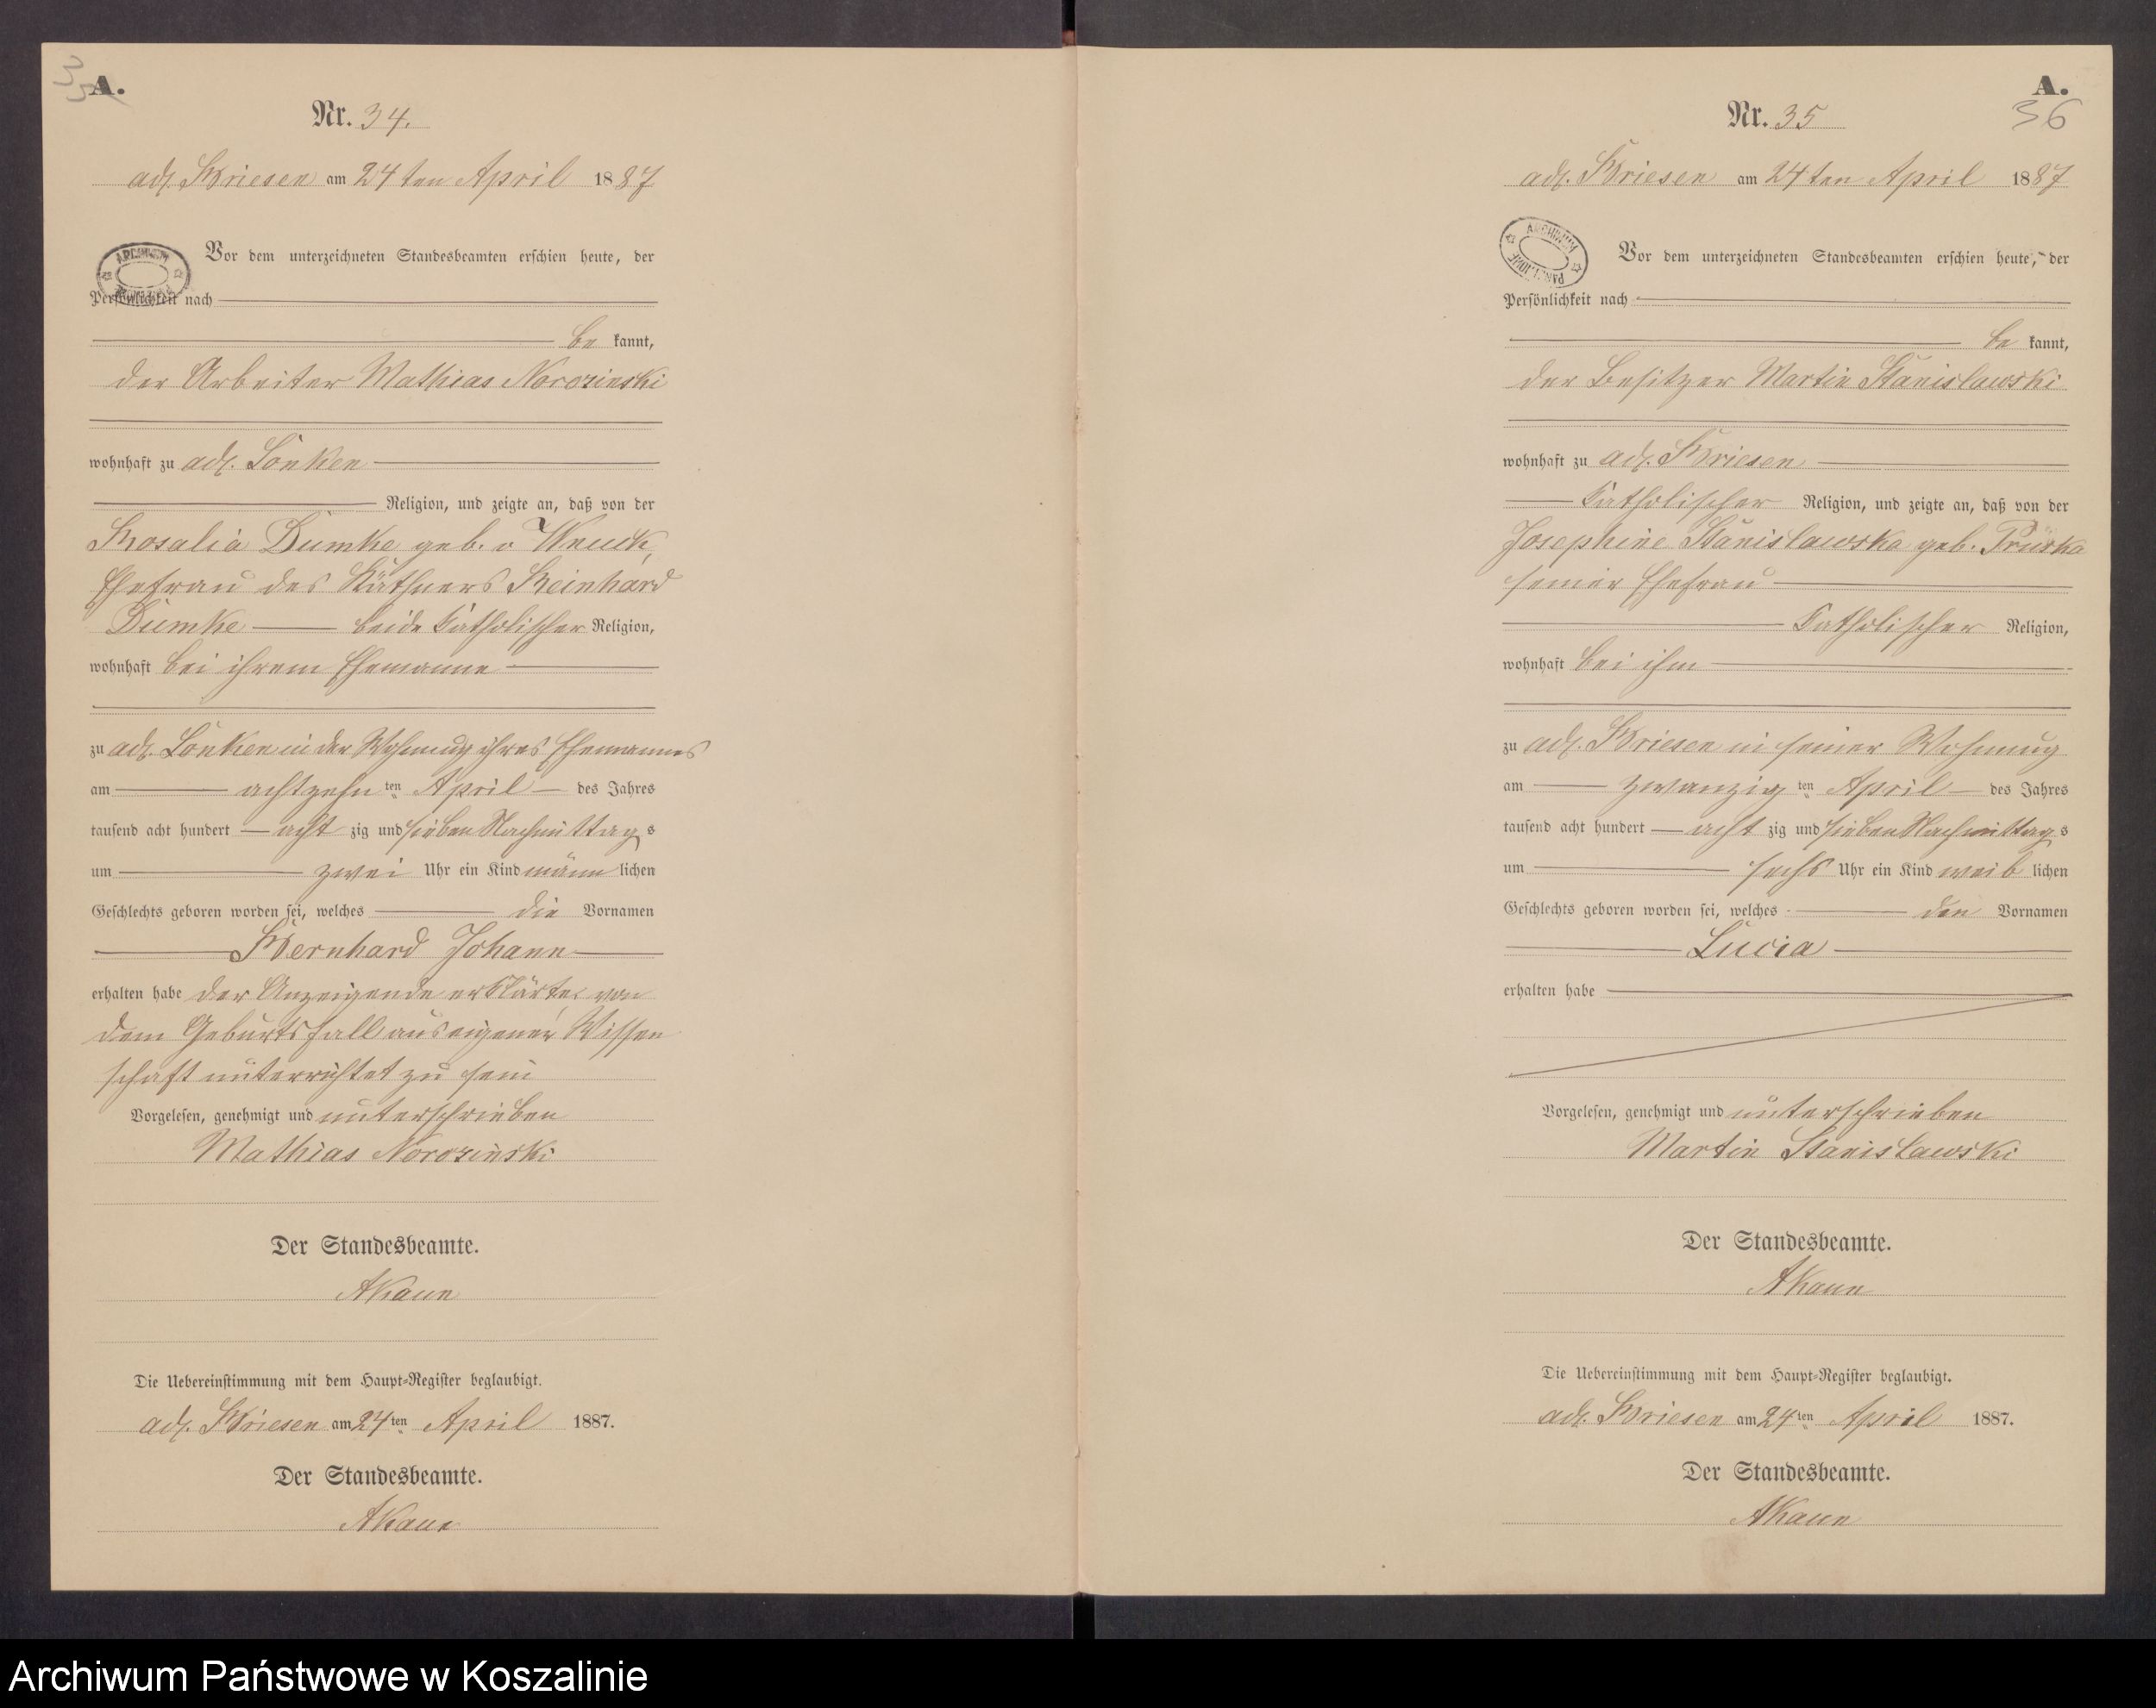 A.
Nr. 34.
adl. Briesen am 24 ten April 1887
Vor dem unterzeichneten Standesbeamten erschien heute, der
Persönlichkeit nach
be kannt,
der Arbeiter Mathias
wohnhaft zu adl. Lonken
Religion, und zeigte an, daß von der
Rosalia Dumke geb. v
Ehefrau des Käthners Reinhard
Dumke beide Katholischer Religion,
wohnhaft bei ihrem Ehemanne
zu adl. Lonken in der Wohnung ihres Ehemannes
am achtzehn ten April des Jahres
tausend acht hundert acht zig und sieben Nachmittags
um zwei Uhr ein Kind männ lichen
Geschlechts geboren worden sei, welches die Vornamen
Bernhard Johann
erhalten habe der Anzeigende erklärte, von
dem Geburtsfall aus eigener Wissen
schaft unterrichtet zu sein
Vorgelesen, genehmigt und unterschrieben
Mathias
Der Standesbeamte.
AKaun
Die Uebereinstimmung mit dem Haupt-Register beglaubigt.
adl. Briesen am 24 ten April 1887.
Der Standesbeamte.
AKaun
A.
36
Nr. 35
adl. Briesen am 24 ten April 1887
ARCHIWUM
Vor dem unterzeichneten Standesbeamten erschien heute, der
Persönlichkeit nach
be kannt,
der Besitzer Martin Stanislawski
wohnhaft zu adl. Briesen
Katholischer Religion, und zeigte an, daß von der
Josephine Stanislawska geb. Pruska
seiner Ehefrau
Katholischer Religion,
wohnhaft bei ihm
zu adl. Briesen in seiner Wohnung
am zwanzig ten April des Jahres
tausend acht hundert acht zig und sieben Nachmittags
um sechs Uhr ein Kind weib lichen
Geschlechts geboren worden sei, welches den Vornamen
Lucia
erhalten habe
Vorgelesen, genehmigt und unterschrieben
Martin Stanislawski
Der Standesbeamte.
AKaun
Die Uebereinstimmung mit dem Haupt-Register beglaubigt.
adl. Briesen am 24 ten April 1887.
Der Standesbeamte.
AKaun
Archiwum Państwowe w Koszalinie